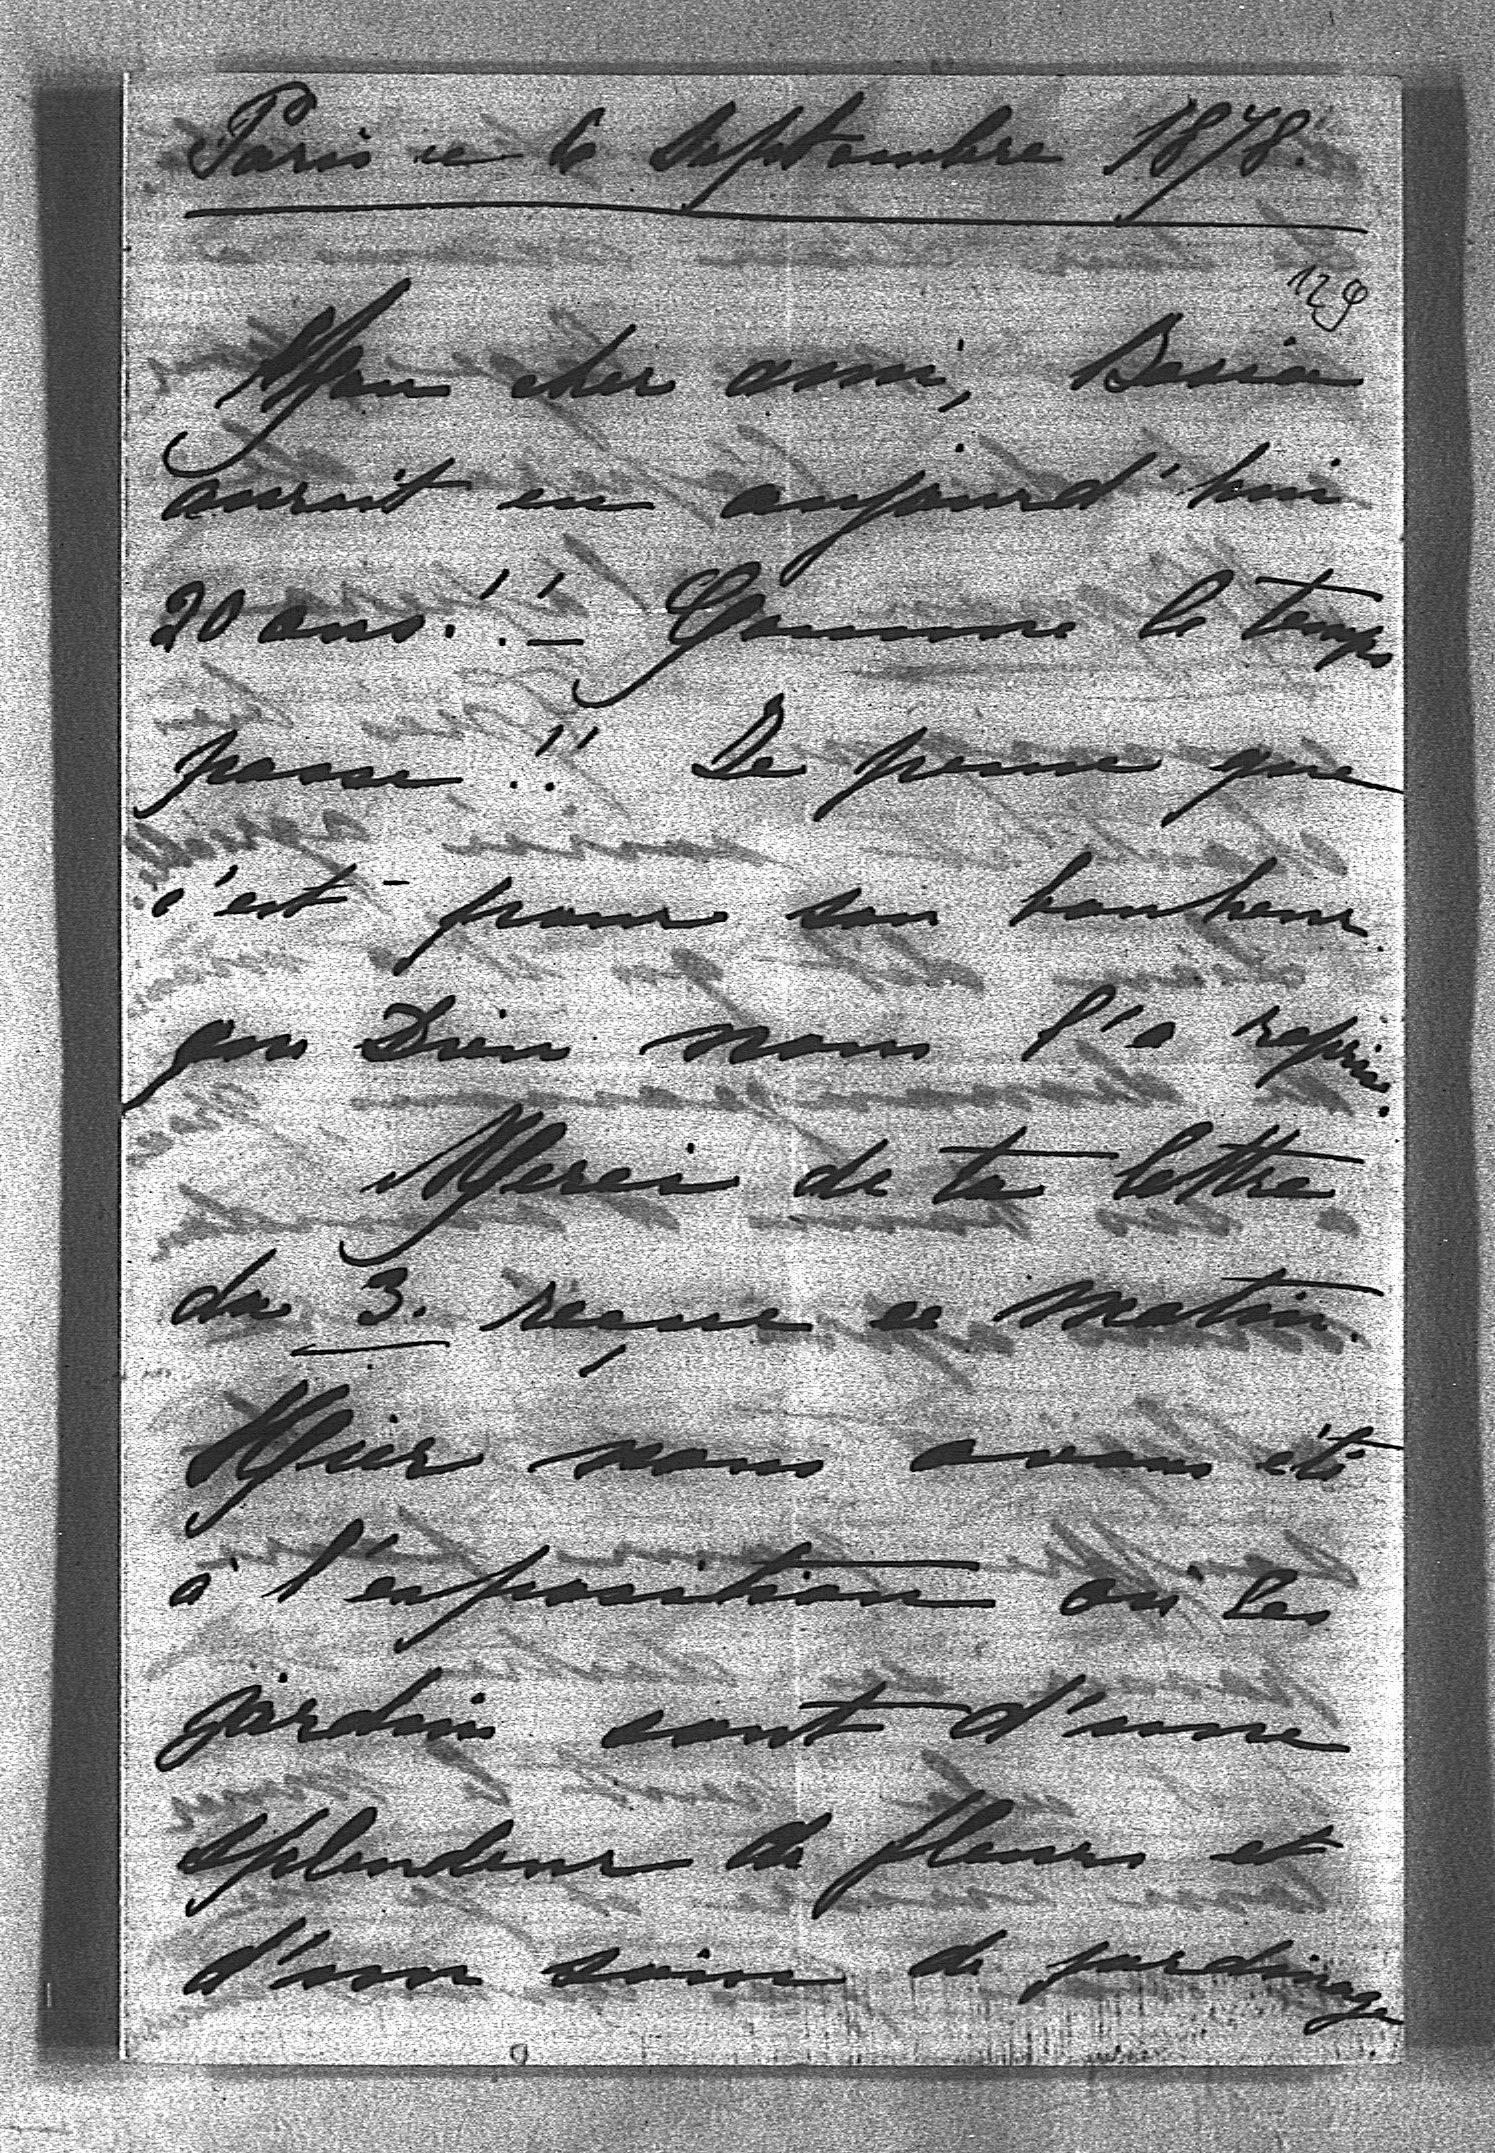 Paris ce 6 Septembre 1878.
129
Mon cher ami,
aurait eu aujourd'hui
20 ans.!.! Comme le temps
passe!! Je pense que
c'est pour son bonheur
que Dieu nous l'a repris.
Merci de ta lettre
du 3. reçue ce matin.
Hier nous avons été
à l'exposition où les
jardins sont d'une
splendeur de fleurs et
d'un soin de jardinage